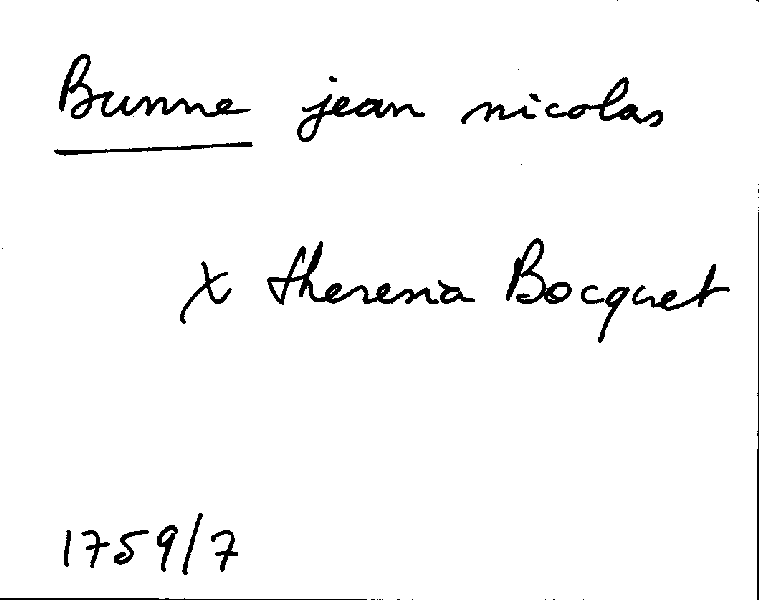 Bunne jean nicolas
x theresia Bocquet
1759/7